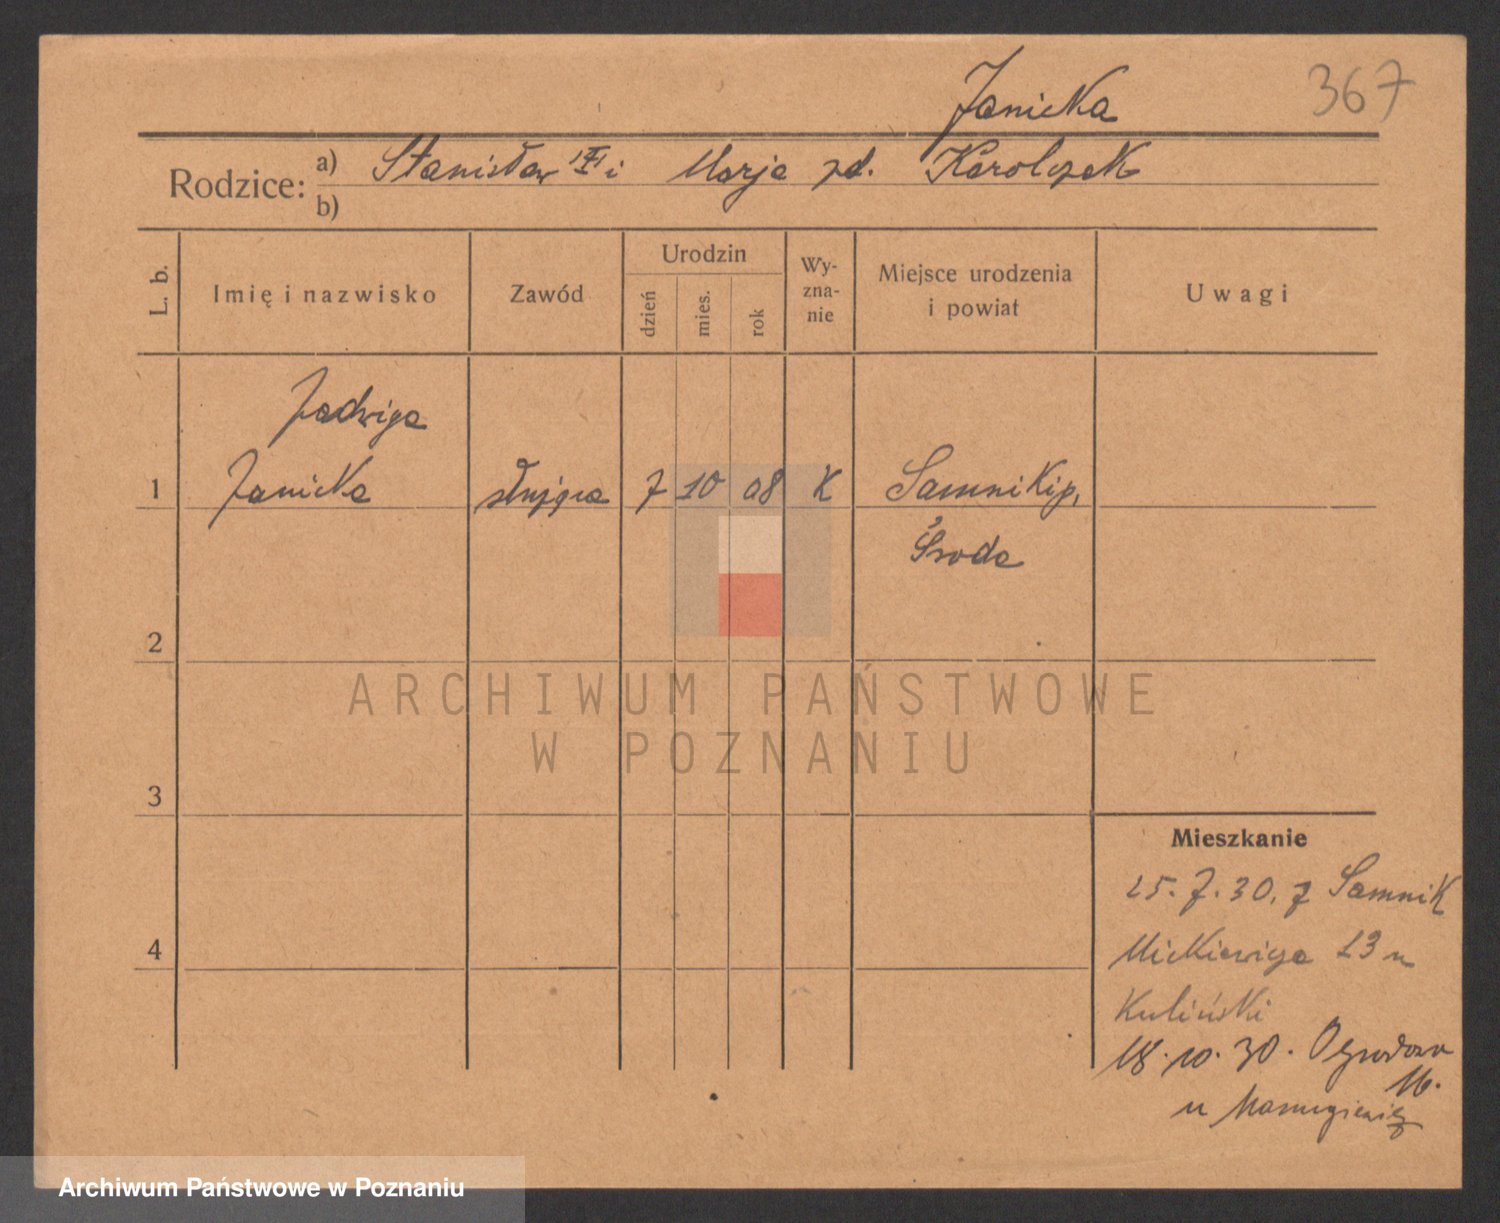 367
Janicka
Rodzice: a) Stanisław i Marja zd. Karolczak
b)
L. b.
Imię i nazwisko
Zawód
Urodzin
dzień
mies.
rok
Wy-
zna-
nie
Miejsce urodzenia
i powiat
Uwagi
Jadwiga
1 Janicka służąca 7 10 08 K Sarnniki p.
Środa
2
3
4
Mieszkanie
25. 7. 30. z
Mickiewicza 23 u
Kuliński
18. 10. 30. Ogrodowa
16.
u
ARCHIWUM PAŃSTWOWE
W POZNANIU
Archiwum Państwowe w Poznaniu